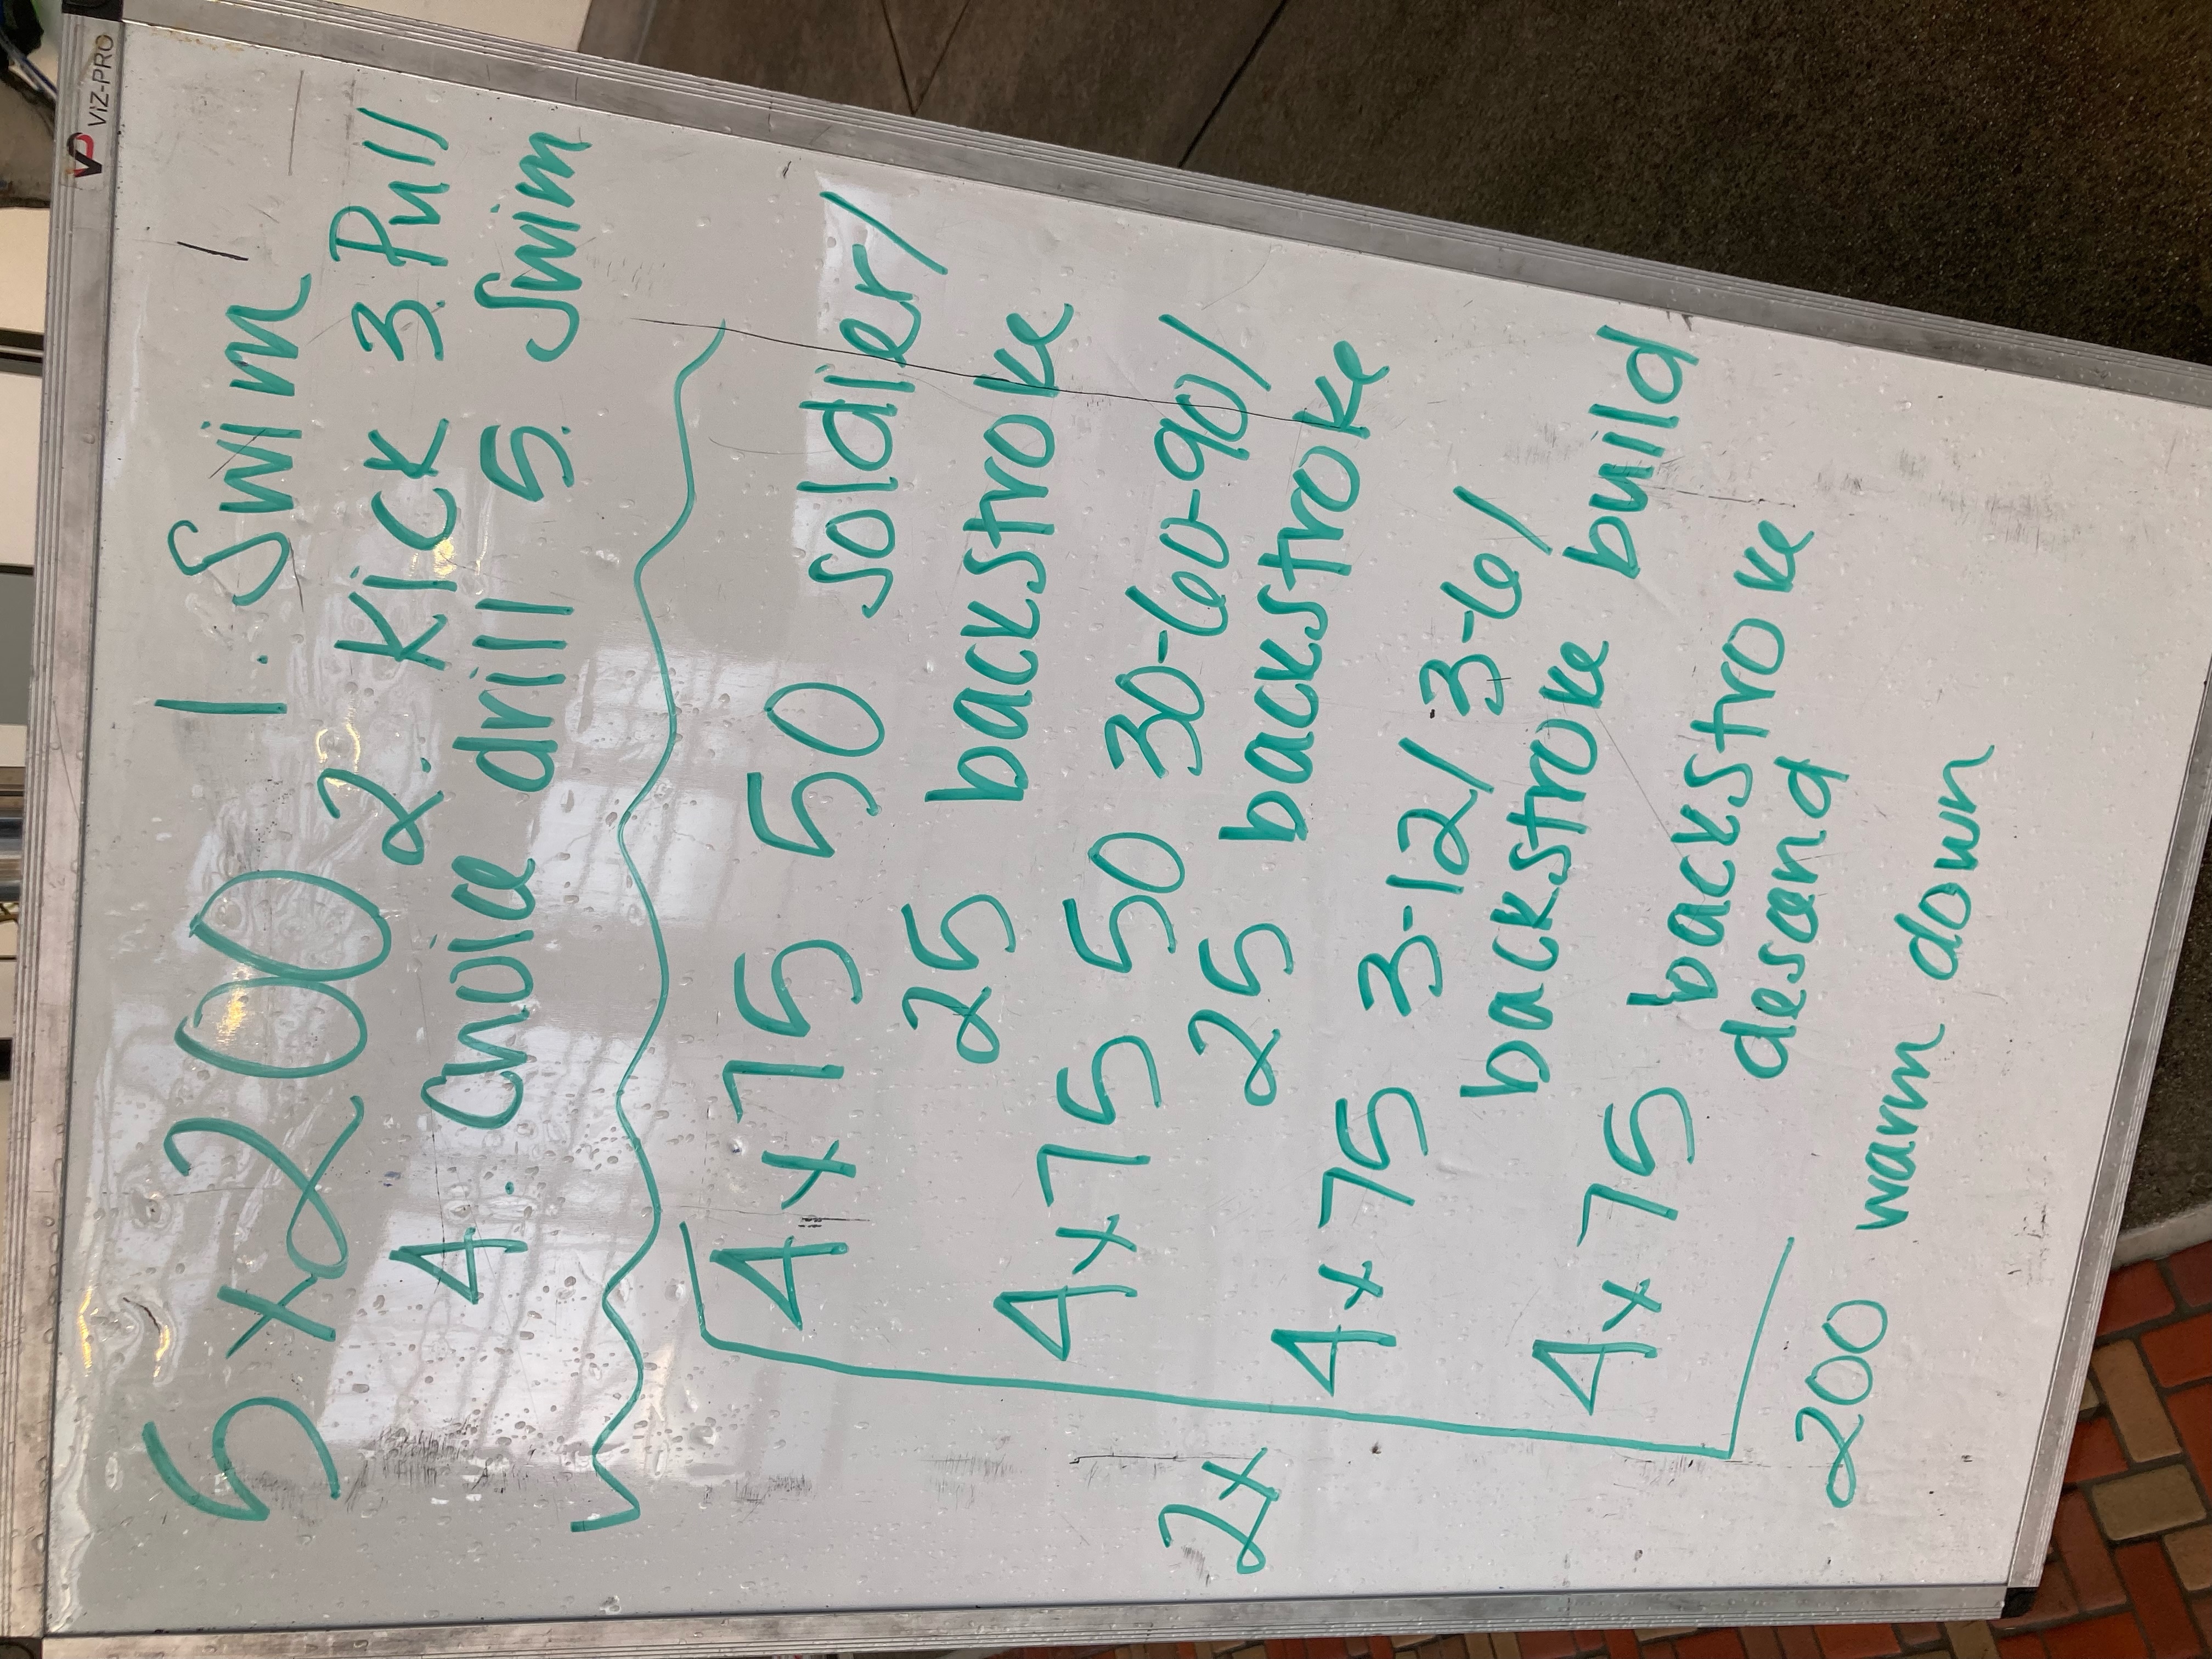 VIZ-PRO
5x200 1. Swim
2. Kick 3. Pull
4. choice drill 5. Swim
4x75 50 soldier/
25 backstroke
4x75 50 30-60-90/
25 backstroke
2x
4x75 3-12/3-6/
backstroke build
4x75 backstroke
descend
200 warm down